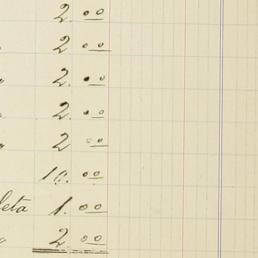 2.00
2.00
" 2.00
" 2.00
" 2 00
10.00
leta 1.00
" 2.00